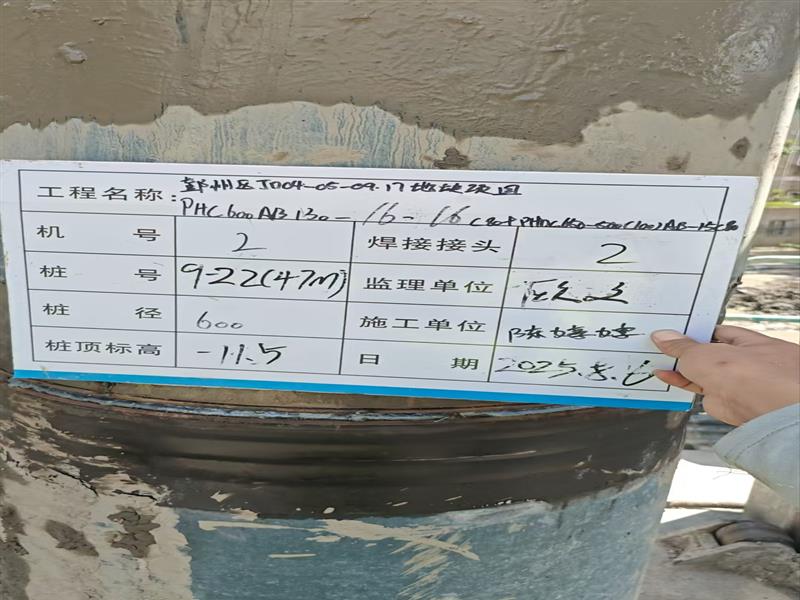 工程名称: 鄞州区JD04-05-09.17地块项目
PHC 600 AB 130 - 16 - 16 C80+PHDC 650-500(100)AB-15C80
机号 2 焊接接头 2
桩号 9-22(47m) 监理单位
桩径 600 施工单位 陈婷婷
桩顶标高 -11.5 日期 2025.5.6